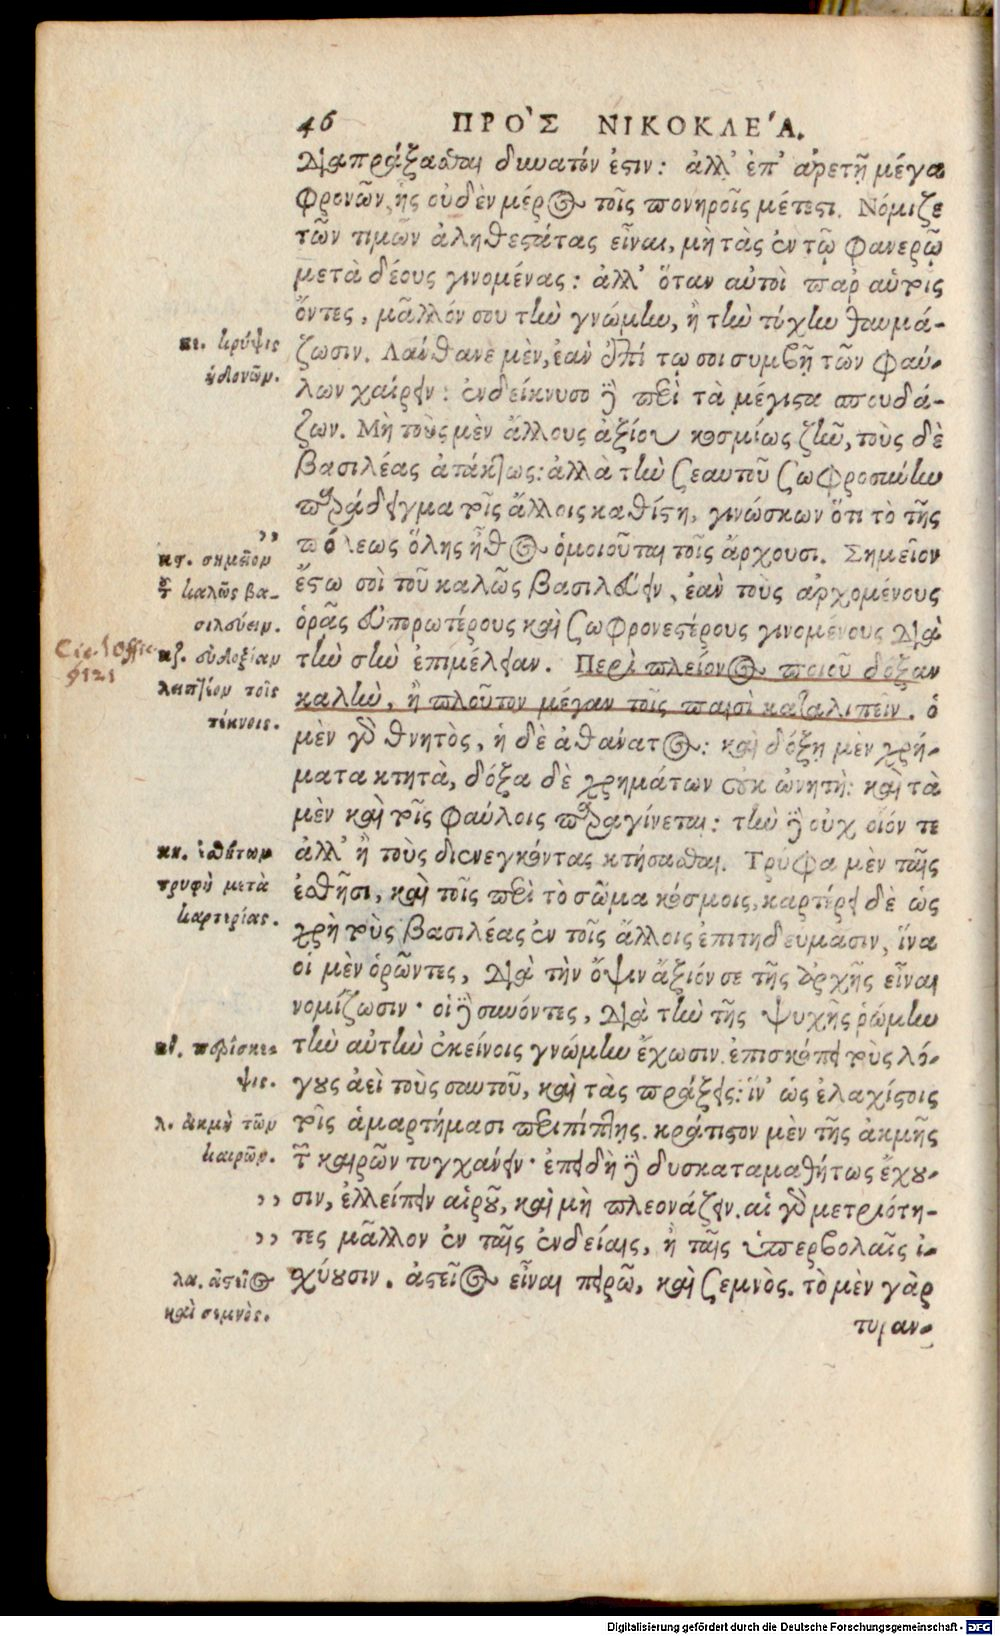 46 ΠΡΟ`Σ ΝΙΚΟΚΛΕ´Α.
διαπράξασθαι δυνατόν ἐστιν: ἀλλ' ἐπ' ἀρετῇ μέγα
φρονῶν, ἧς οὐδὲν μέρος τοῖς πονηροῖς μέτεστι. Νόμιζε
τῶν τιμῶν ἀληθεστάτας εἶναι, μὴ τὰς ἐν τῷ φανερῷ
μετὰ δέους γινομένας: ἀλλ' ὅταν αὐτοὶ παρ' αὑτοῖς
ὄντες, μᾶλλόν σου τὴν γνώμην, ἢ τὴν τύχην θαυμά-
κε. κρύψις
ζωσιν. Λάνθανε μὲν, ἐὰν ἐπί τῳ σοι συμβῇ τῶν φαύ-
ἡδονῶν.
λων χαίρειν: ἐνδείκνυσο δὲ περὶ τὰ μέγιστα σπουδά-
ζων. Μὴ τοὺς μὲν ἄλλους ἀξίου κοσμίως ζῆν, τοὺς δὲ
βασιλέας ἀτάκτως: ἀλλὰ τὴν σεαυτοῦ σωφροσύνην
παράδειγμα τοῖς ἄλλοις καθίστη, γινώσκων ὅτι τὸ τῆς
,,
κϛ. σημεῖον
πόλεως ὅλης ἦθος ὁμοιοῦται τοῖς ἄρχουσι. Σημεῖον
τοῦ καλῶς βα-
ἔστω σοὶ τοῦ καλῶς βασιλεύειν, ἐὰν τοὺς ἀρχομένους
σιλεύειν.
ὁρᾷς εὐπορωτέρους καὶ σωφρονεστέρους γινομένους διὰ
Cic. 1 Offic.
§ 121
κζ. εὐδοξίαν
τὴν σὴν ἐπιμέλειαν. Περὶ πλείονος ποιοῦ δόξαν
λειπτέον τοῖς
καλὴν, ἢ πλοῦτον μέγαν τοῖς παισὶ καταλιπεῖν. ὁ
τέκνοις.
μὲν γὰρ θνητὸς, ἡ δὲ ἀθάνατος: καὶ δόξῃ μὲν χρή-
ματα κτητὰ, δόξα δὲ χρημάτων οὐκ ὠνητὴ: καὶ τὰ
μὲν καὶ τοῖς φαύλοις παραγίνεται: τὴν δὲ οὐχ οἷόν τε
κη. ἐσθήτων
ἀλλ' ἢ τοὺς διενεγκόντας κτήσασθαι. Τρύφα μὲν ταῖς
τρυφὴ μετὰ
ἐσθῆσι, καὶ τοῖς περὶ τὸ σῶμα κόσμοις, καρτέρει δὲ ὡς
καρτερίας.
χρὴ τοὺς βασιλέας ἐν τοῖς ἄλλοις ἐπιτηδεύμασιν, ἵνα
οἱ μὲν ὁρῶντες, διὰ τὴν ὄψιν ἄξιόν σε τῆς ἀρχῆς εἶναι
νομίζωσιν· οἱ δὲ συνόντες, διὰ τὴν τῆς ψυχῆς ῥώμην
κθ. περίσκε-
τὴν αὐτὴν ἐκείνοις γνώμην ἔχωσιν. ἐπισκόπει τοὺς λό-
ψις.
γους ἀεὶ τοὺς σαυτοῦ, καὶ τὰς πράξεις: ἵν' ὡς ἐλαχίστοις
λ. ἀκμὴ τῶν
τοῖς ἁμαρτήμασι περιπίπτῃς. κράτιστον μὲν τῆς ἀκμῆς
καιρῶν.
τῶν καιρῶν τυγχάνειν· ἐπειδὴ δὲ δυσκαταμαθήτως ἔχου-
,, σιν, ἐλλείπειν αἱροῦ, καὶ μὴ πλεονάζειν. αἱ γὰρ μετριότη-
,, τες μᾶλλον ἐν ταῖς ἐνδείαις, ἢ ταῖς ὑπερβολαῖς ἰ-
λα. ἀστεῖος
χύουσιν. ἀστεῖος εἶναι πειρῶ, καὶ σεμνὸς. τὸ μὲν γὰρ
καὶ σεμνός.
τυραν-
Digitalisierung gefördert durch die Deutsche Forschungsgemeinschaft - DFG